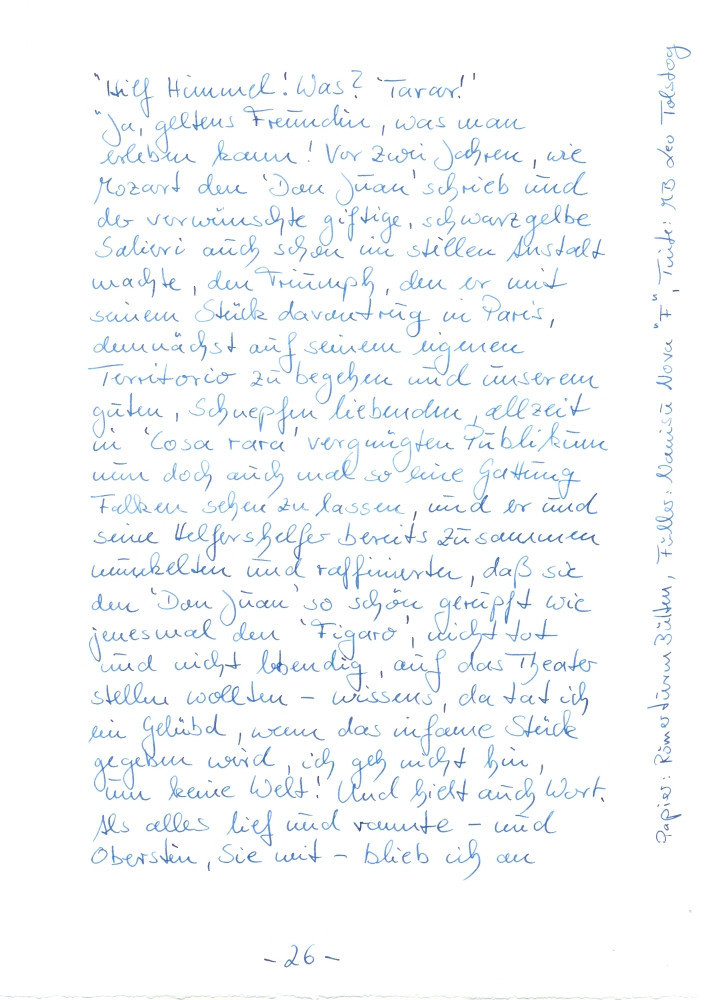 "Hilf Himmel! Was? 'Tarar!'
"Ja, geltens Freundin, was man
erleben kann! Vor zwei Jahren, wie
Mozart den 'Don Juan' schrieb und
der verwünschte giftige, schwarzgelbe
Salieri auch schon im stillen Anstalt
machte, den Triumph, den er mit
seinem Stück davontrug in Paris,
demnächst auf seinem eigenen
Territorio zu begehen und unserem
guten, Schnepfen liebenden, allzeit
in 'Cosa rara' vergnügten Publikum
nun doch auch mal so eine Gattung
Falken sehen zu lassen, und er und
seine Helfershelfer bereits zusammen
munkelten und raffinierten, daß sie
den 'Don Juan' so schön gerupft wie
jenesmal den 'Figaro', nicht tot
und nicht lebendig, auf das Theater
stellen wollten – wissens, da tat ich
ein Gelübd, wenn das infame Stück
gegeben wird, ich geh nicht hin,
um keine Welt! Und hielt auch Wort.
Als alles lief und rannte – und
Oberstin, Sie mit – blieb ich an
- 26 -
Papier: Römerturm Bütten, Füller: Namisu Nova "F", Tinte: MB Leo Tolstoy